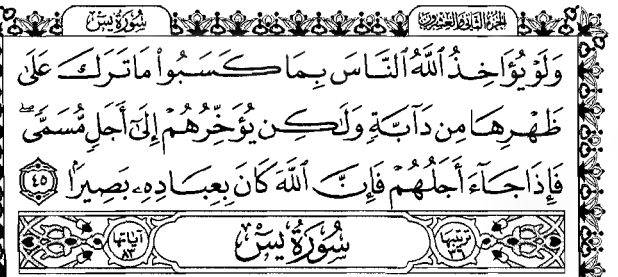 الجزء الثاني والعشرون سورة يس
وَلَوْ يُؤَاخِذُ ٱللَّهُ ٱلنَّاسَ بِمَا كَسَبُوا۟ مَا تَرَكَ عَلَىٰ
ظَهْرِهَا مِن دَآبَّةٍ وَلَٰكِن يُؤَخِّرُهُمْ إِلَىٰٓ أَجَلٍ مُّسَمًّى ۖ
فَإِذَا جَآءَ أَجَلُهُمْ فَإِنَّ ٱللَّهَ كَانَ بِعِبَادِهِۦ بَصِيرًۢا ٤٥
ترتيبها ٣٦ سُورَةُ يسٓ آياتها ٨٣